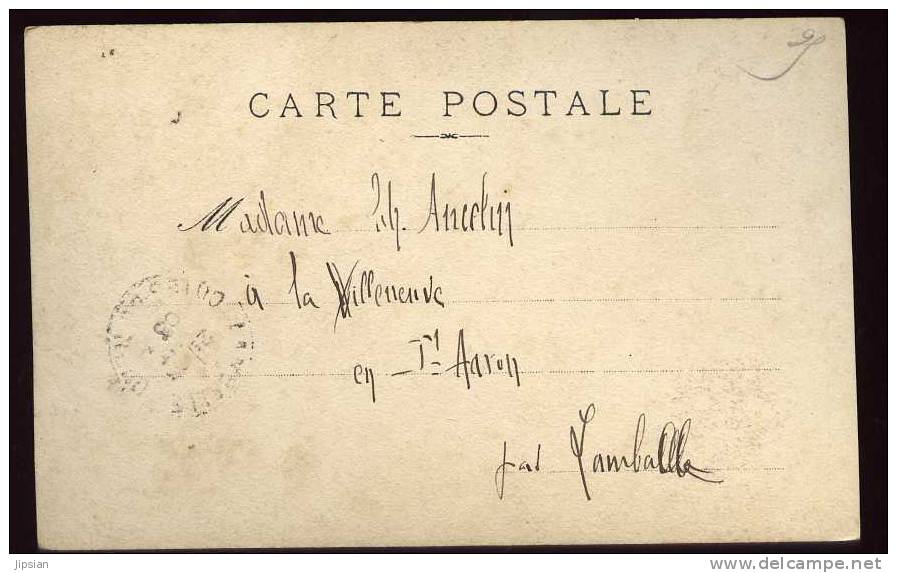 CARTE POSTALE
Madame Ancelin
à la Villeneuve
en St Aaron
par Lamballe
jipsian
delcampe.net